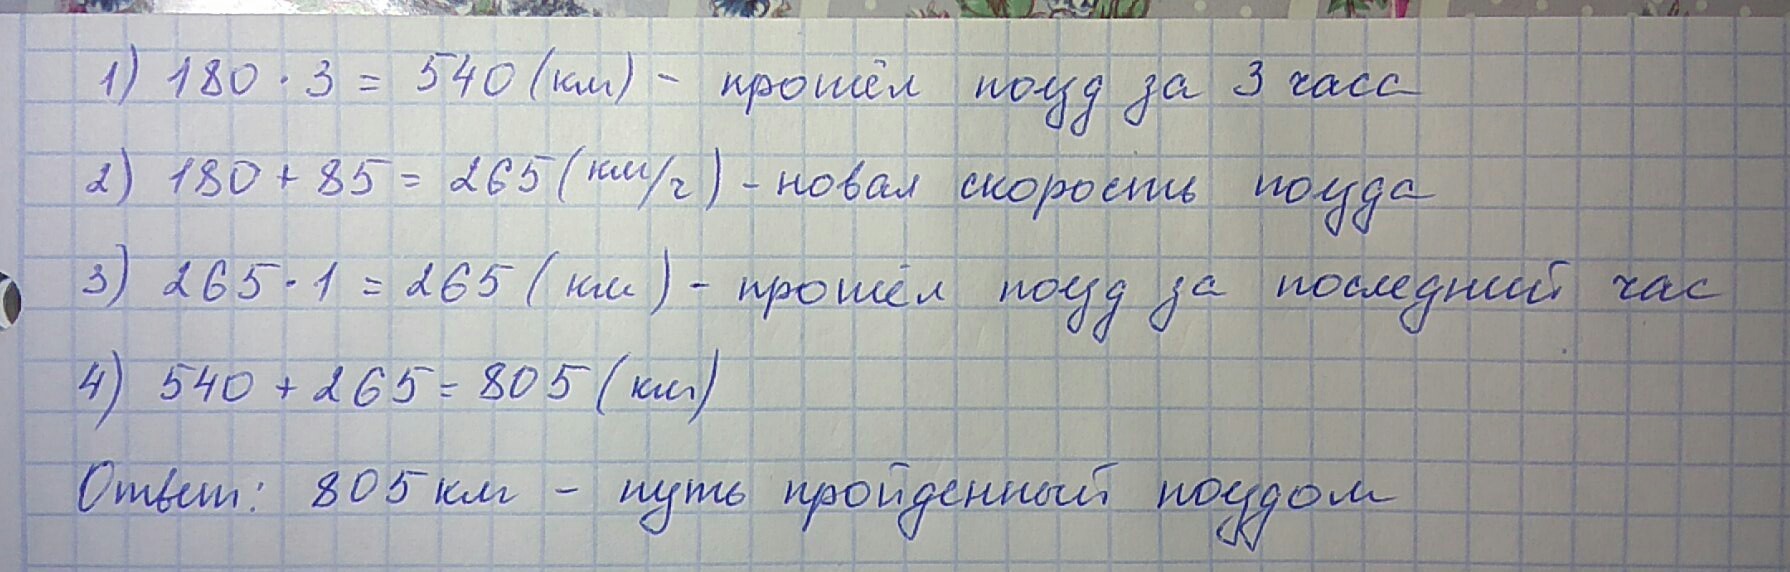 1) 180 · 3 = 540 (км) - прошёл поезд за 3 часа
2) 180 + 85 = 265 (км/ч) - новая скорость поезда
3) 265 · 1 = 265 (км) - прошёл поезд за последний час
4) 540 + 265 = 805 (км)
Ответ: 805 км - путь пройденный поездом